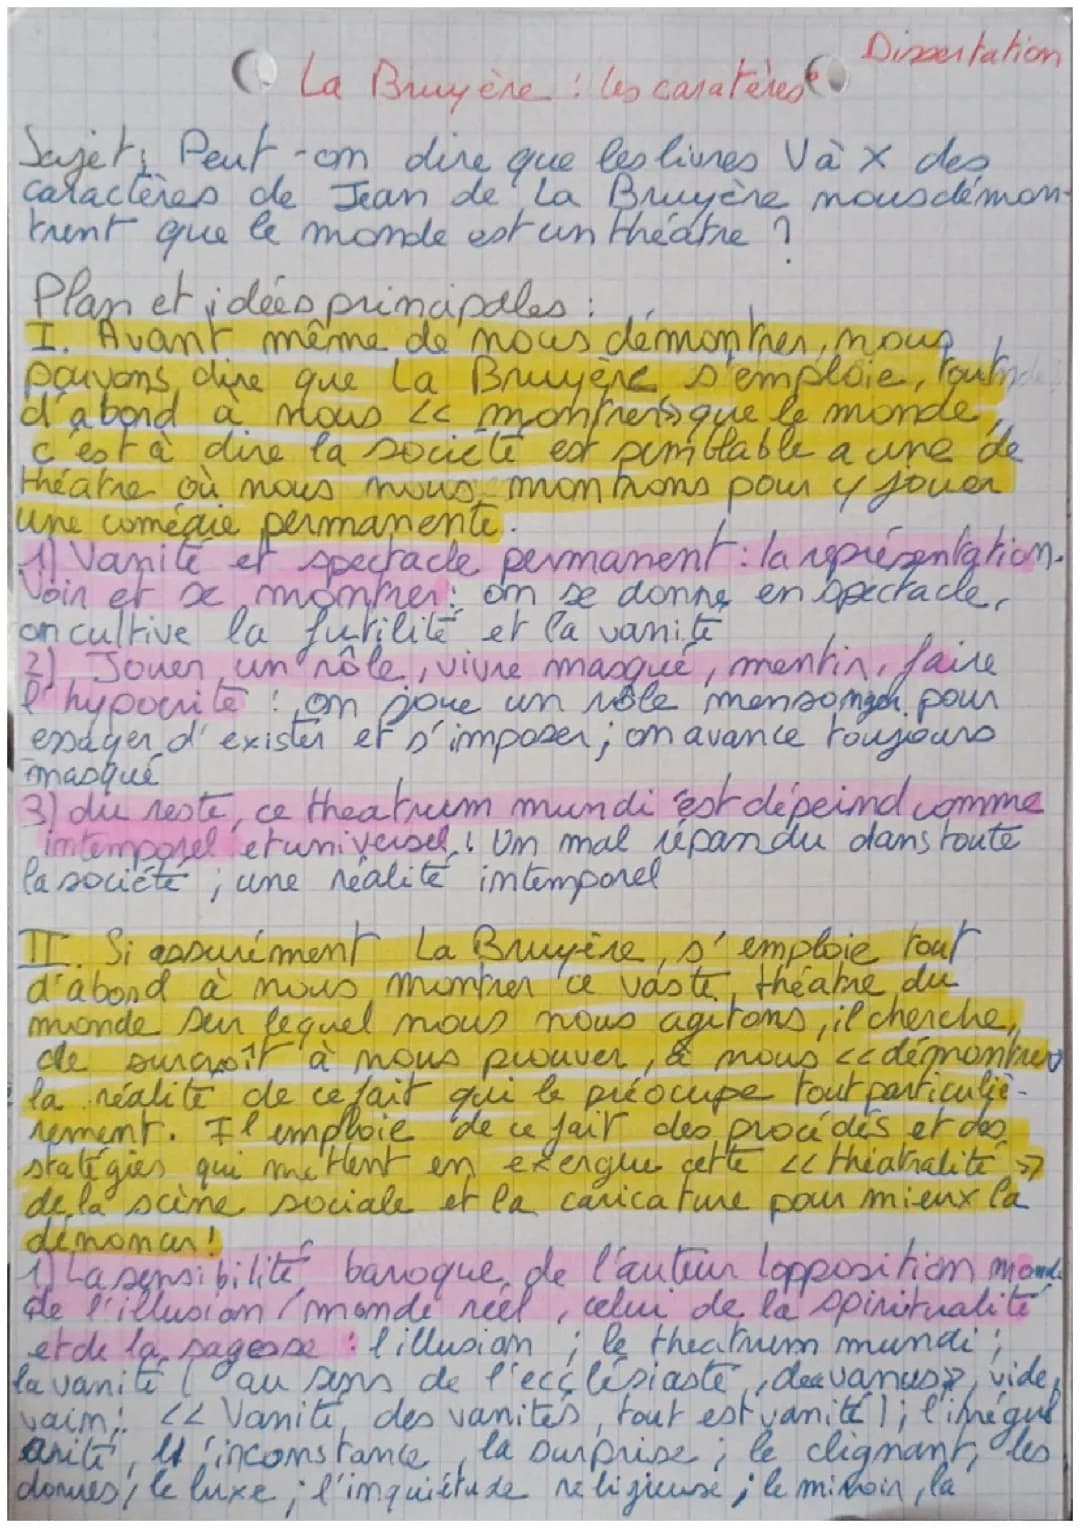 Dissertation
La Bruyère : les caratères
Sujet : Peut-on dire que les livres V à X des
caractères de Jean de La Bruyère nous démon-
trent que le monde est un théâtre ?
Plan et idées principales :
I. Avant même de nous démontrer, nous
pouvons dire que La Bruyère s'emploie, tout
d'abord à nous << montrer >> que le monde,
c'est à dire la société est semblable a une de
théatre où nous nous montrons pour y jouer
une comédie permanente.
1) Vanité et spectacle permanent : la représentation.
Voir et se montrer : on se donne en spectacle,
on cultive la futilité et la vanité
2) Jouer un rôle, vivre masqué, mentir, faire
l'hypocrite : on joue un rôle mensonger pour
essayer d'exister et s'imposer ; on avance toujours
masqué
3) du reste, ce theatrum mundi est dépeind comme
intemporel et universel : Un mal répandu dans toute
la société ; une réalité intemporel
II. Si assurément La Bruyère, s'emploie tout
d'abord à nous montrer ce vaste théatre du
monde sur lequel nous nous agitons, il cherche,
de surcroît à nous prouver, à nous << démontrer >>
la réalité de ce fait qui le préocupe tout particuliè-
rement. Il emploie de ce fait des procédés et des
statégies qui mettent en exergue cette << théatralité >>
de la scène sociale et la caricature pour mieux la
dénoncer !
1) La sensibilité baroque de l'auteur l'opposition monde
de l'illusion / monde réel, celui de la spiritualité
et de la sagesse : l'illusion ; le theatrum mundi ;
la vanité ( au sens de l'ecclésiaste, vanus >>, vide,
vain ; << Vanité des vanités, tout est vanité ) ; l'irrégul
arité, l'inconstance, la surprise ; le clignant, les
dorures, le luxe ; l'inquiétude religieuse ; le miroir, la